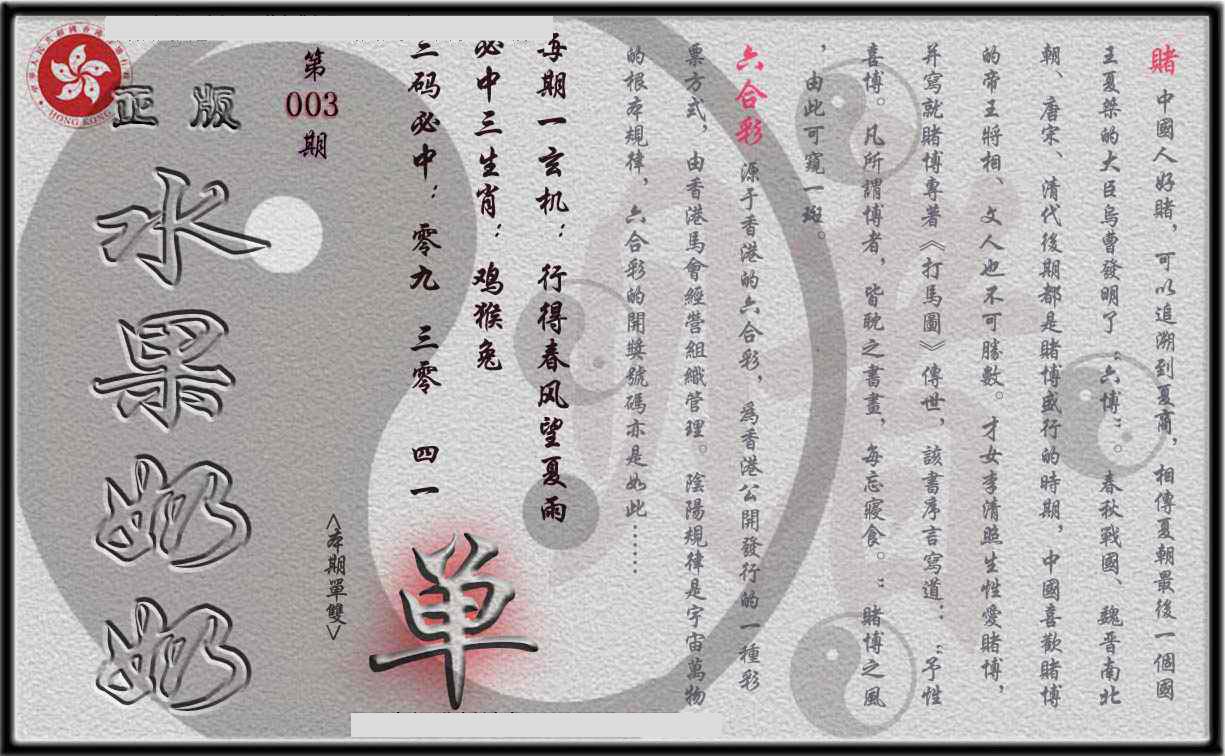 賭 中國人好賭，可以追溯到夏商，相傳夏朝最後一個國
王夏桀的大臣烏曹發明了“六博”。春秋戰國、魏晋南北
朝、唐宋、清代後期都是賭博盛行的時期，中國喜歡賭博
的帝王將相、文人也不可勝數。才女李清照生性愛賭博，
并寫就賭博專著《打馬圖》傳世，該書序言寫道：“予性
喜博。凡所謂博者，皆耽之書晝，每忘寢食。”賭博之風
，由此可窺一斑。
六合彩 源于香港的六合彩，為香港公開發行的一種彩
票方式，由香港馬會經營組織管理。陰陽規律是宇宙萬物
的根本規律，六合彩的開獎號碼亦是如此……
每期一玄机：行得春风望夏雨
必中三生肖：鸡猴兔
三码必中：零九 三零 四一
第003期
<本期單雙>
单
正版
水果奶奶
HONG KONG